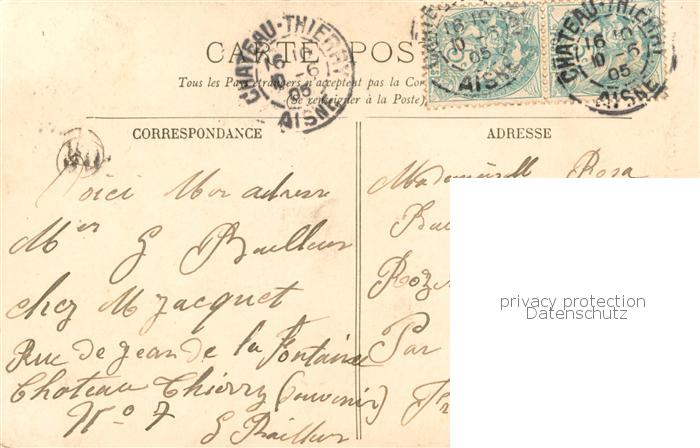 CARTE POST
Tous les Pays étrangers n'acceptent pas la Cor
(Se renseigner à la Poste)
CHATEAU-THIERRY
16
10 -6
05
AISNE
CHATEAU-THIERRY
16 10
10 -6
05
AISNE
CHATEAU-THIERRY
16 10
10 -6
05
AISNE
CORRESPONDANCE
ADRESSE
Voici Mon adresse
Mer G Bailleux
chez M Jacquet
Rue de Jean de la Fontaine
Chateau Thierry (souvenir)
No 7
G Bailleux
Mademoiselle Rosa
Bai
Roze
Par
privacy protection
Datenschutz